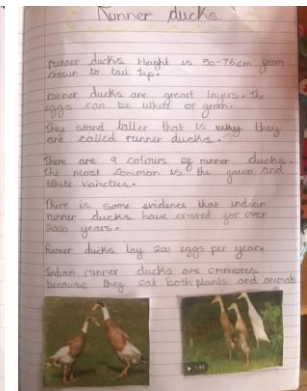 Runner ducks
runner ducks Height is 50-76cm from
crown to tail tip.
runner ducks are great layers. The
eggs can be white or green.
They stand taller that is why they
are called runner ducks.
There are 9 colours of runner ducks.
The most common is the fawn and
white varieties.
There is some evidence that indian
runner ducks have existed for over
2000 years.
Runner ducks lay 200 eggs per year.
Indian runner ducks are omnivores
because they eat both plants and animals